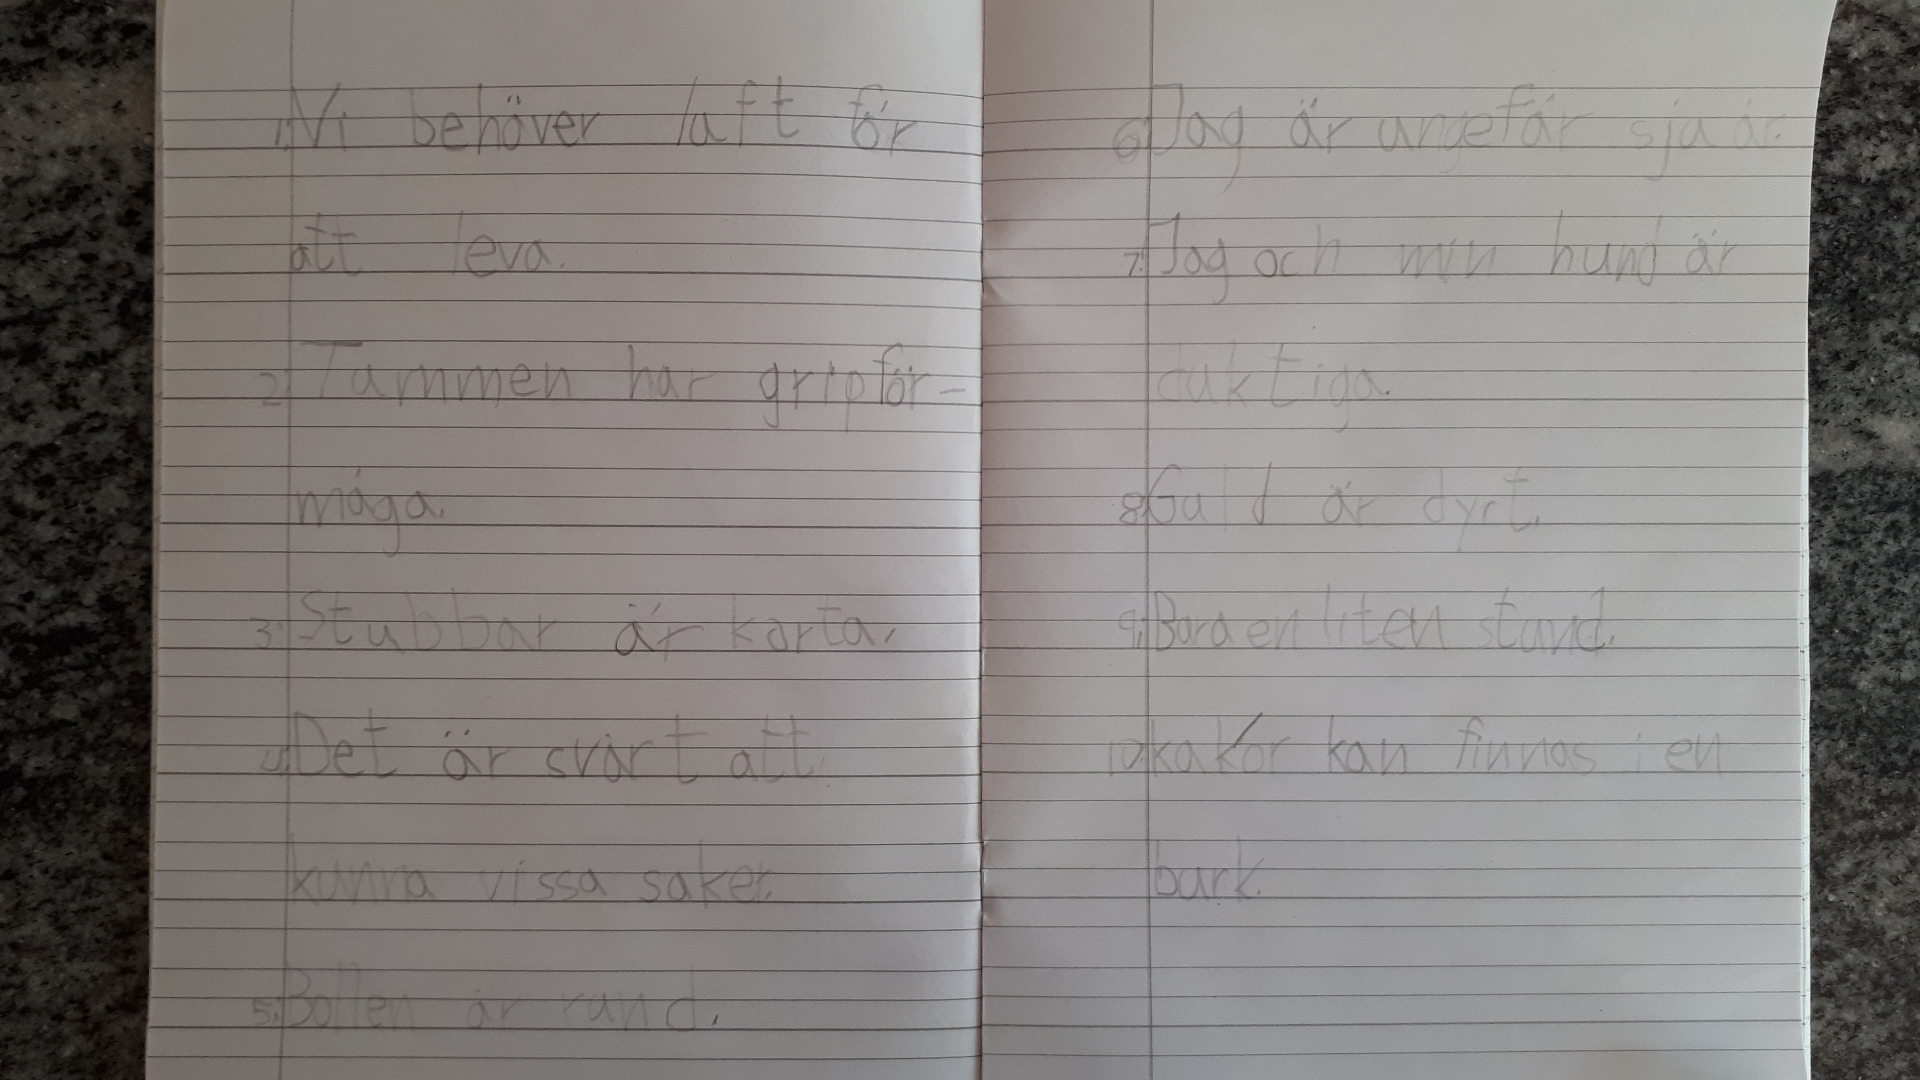 1. Vi behöver luft för
att leva.
2. Tummen har gripför-
måga.
3. Stubbar är korta.
4. Det är svårt att
kunna vissa saker.
5. Bollen är rund.
6. Jag är ungefär sju år.
7. Jag och min hund är
duktiga.
8. Guld är dyrt.
9. Bara en liten stund.
10. kakor kan finnas i en
burk.